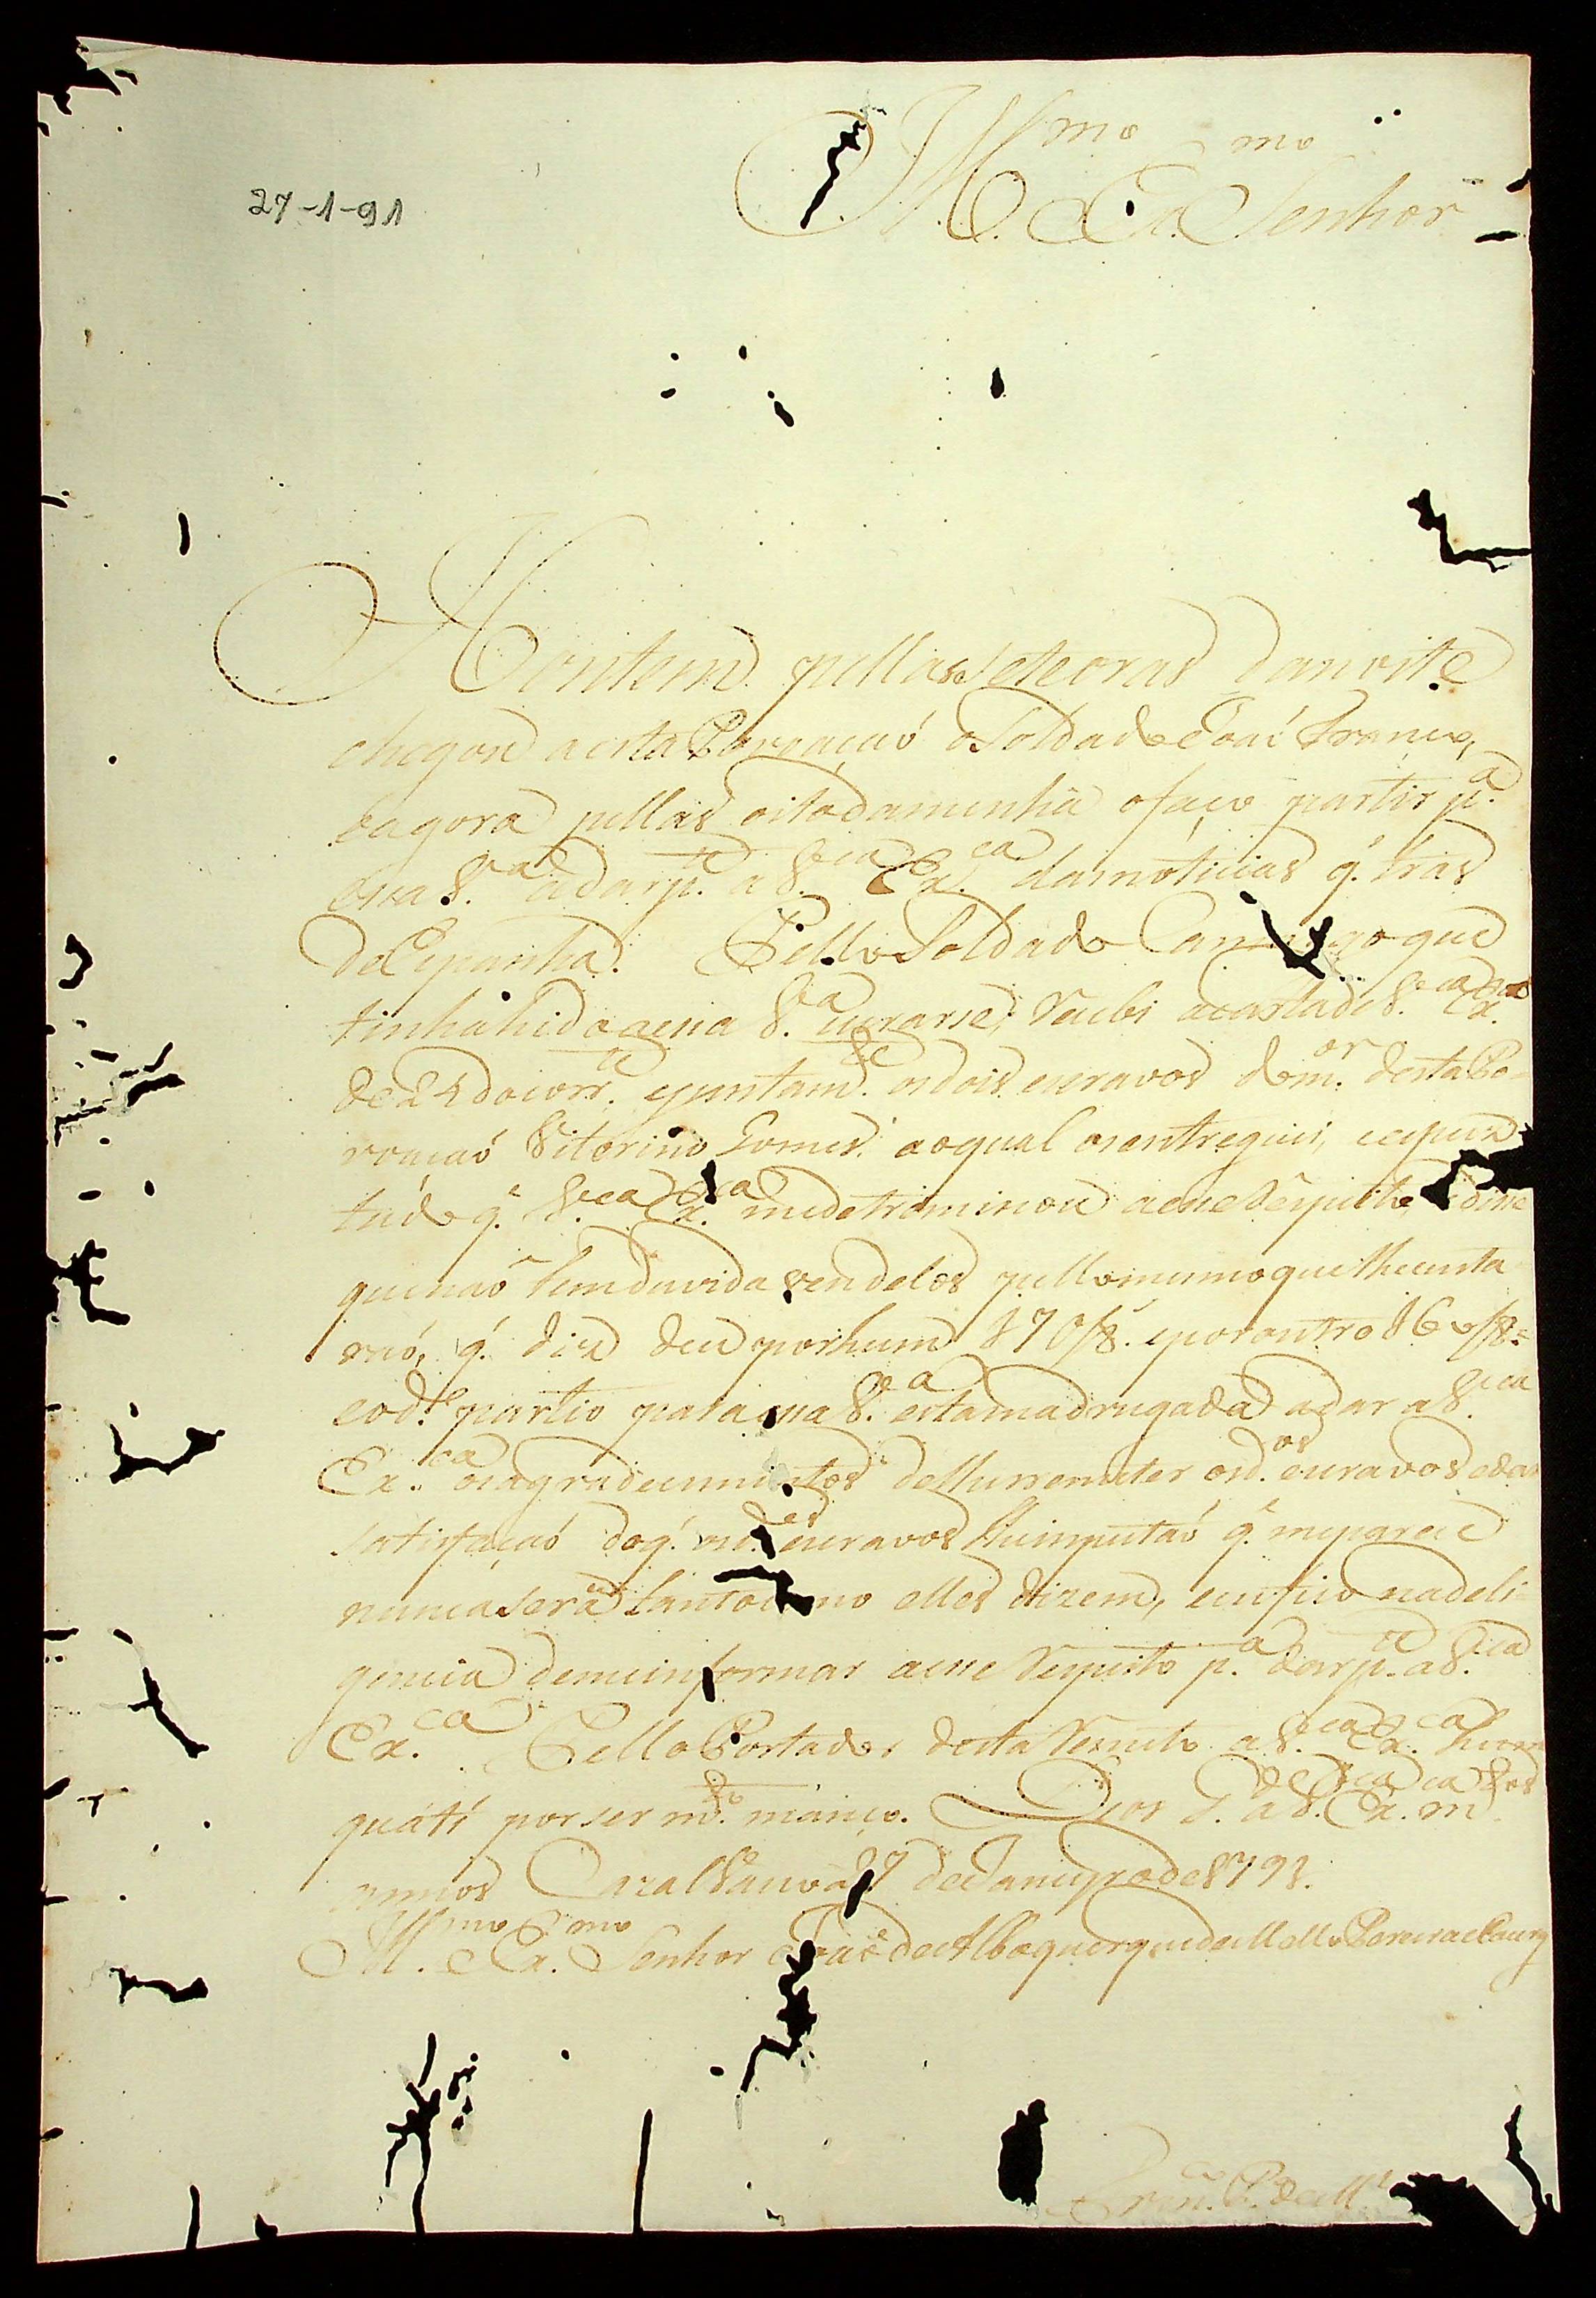 27-1-91
Ill.mo Ex.mo Senhor
Hontem pellas sete oras da noite
chegou a esta Povoaçaõ o Soldado Joaõ Franco,
e agora pellas oito da menhã o faço partir p.a
essa V.a a dar p.te a V.ca Ex.ca das noticias q. tras
de Espanha. Pello Soldado que
tinha hido a essa V.a curarse, recebi a carta de V.ca Ex.ca
de 24 do corr.te e juntam.te os dois escravos do m.or desta Po-
voaçaõ Vitorino Gomes, ao qual os entreguei, e espus
tudo q.e V.ca Ex.ca me detriminou a esse respeito, disse
que naõ tem duvida vendelos pello mesmo que lhe custa
raõ, q. diz deu por hum 170/8.s e por outro 160/8.s
e o d.o partio para essa V.a esta madrugada a dar a V.ca
Ex.ca os agradecimentos de lhe remeter os d.os escravos e dar
satisfaçaõ do q. os d.os escravos lhe imputaõ q.e me parece
nunca será tanto como elles dizem, eu fico na deli-
gencia de me informar a esse respeito p.a dar p.te a V.ca
Ex.ca Pello Portador desta remeto a V.ca Ex.ca hum
quati por ser m.to manço. Deos g.de a V.ca Ex.ca m.tos
annos Cazalvasco a 27 de Janeyro de 1791.
Ill.mo e Ex.mo Senhor Joaõ de Alboquerque de Mello Pereira e Caceres
Fran.co P. de M.